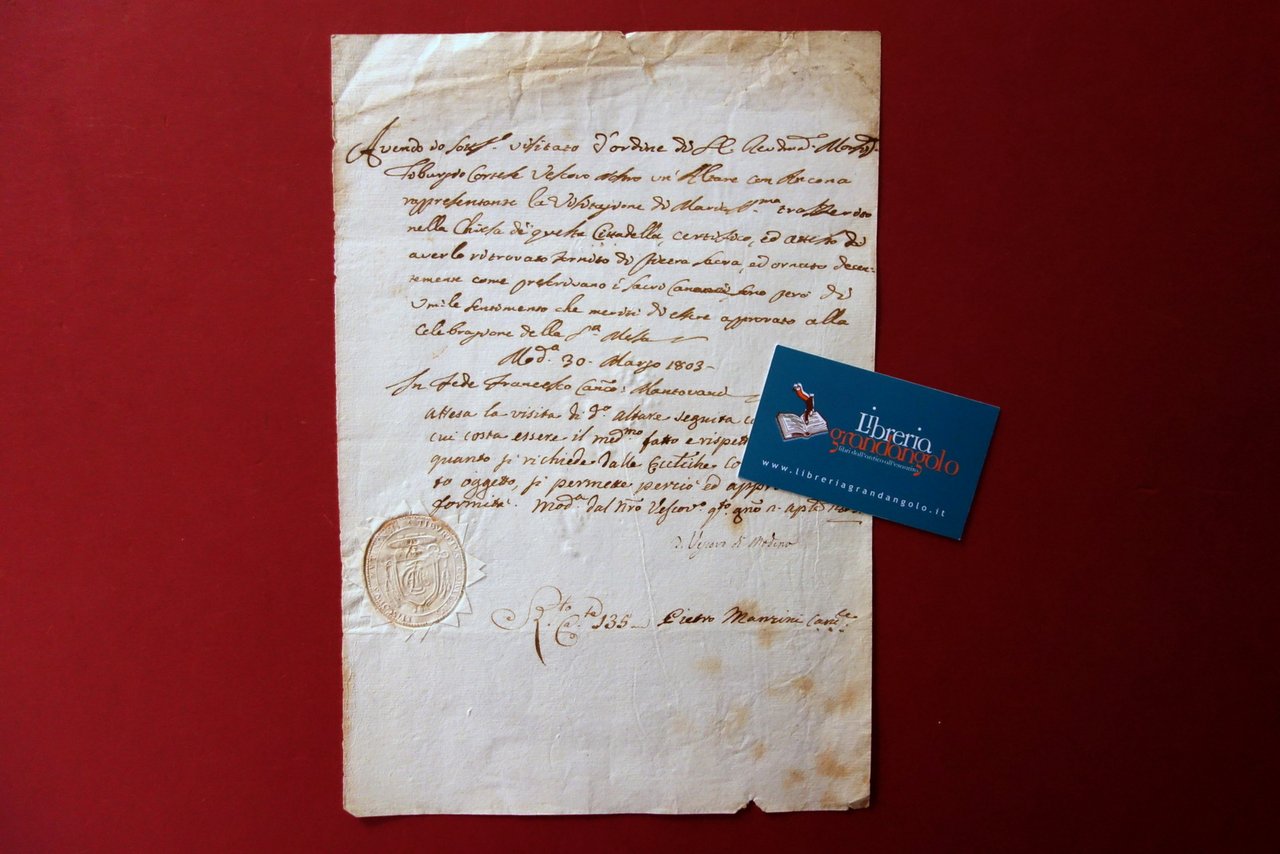 Avendo io Sott.º visitato d'ordine di S. E. Revdma Monsr.
Tiburzio Cortese Vescovo nostro un'Altare con Ancona
rappresentante la Visitazione di Maria S.ma trasferito
nella Chiesa di questa Cittadella, certifico, ed attesto di
averlo ritrovato fornito di Pietra Sacra, ed ornato decen-
temente come prescrivano i Sacri Canoni, sono però di
umile sentimento che meriti di essere approvato alla
Celebrazione della S.ta Messa
Mod.a 30. Marzo 1803
In Fede Francesco Can.co Mantovani
Attesa la visita di d.o altare seguita
cui costa essere il med.mo fatto e
quanto si richiede dalle
to oggetto, si permette perciò ed
formità. Mod.a dal nro Vescov.o
Vescovo di Modena
R.to C.a 135 Pietro Manzini Canc.e
Libreria
grandangolo
libri dall'antico all'esaurito
www.libreriagrandangolo.it